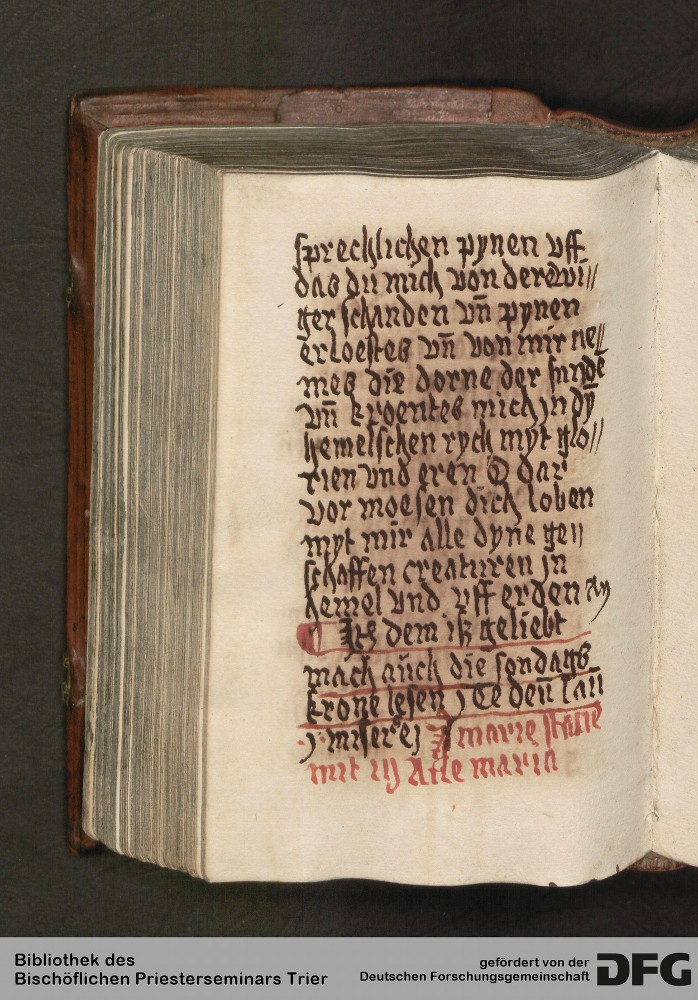 sprechlichen pynen vff
das du mich von der ewi//
ger schanden vn̄ pynen
erloestes vn̄ von mir ne//
mes die dorne der sundē
vn̄ kroentes mich jn dȳ
hemelschen rych myt glo//
rien vnd eren O dar
vor moesen dich loben
myt mir alle dyne ge//
schaffen creaturen jn
hemel vnd vff erden
dem iß geliebt
mach auch die sondags
krone lesen j Te deū lau
j miserej marie
mit iij Aue maria
Bibliothek des
Bischöflichen Priesterseminars Trier
gefördert von der
Deutschen Forschungsgemeinschaft
DFG